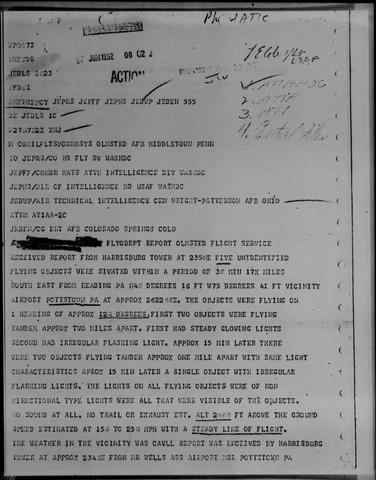 27 JUN 1952 08 02 Z
ACTION
JEDLS
EMERGENCY JEPRS JEPFF JEPMG JEDWP JEDEN 555
DE JEDLS 1C
FM COMILFLTSVCOMMSYS OLMSTED AFB MIDDLETOWN PENN
TO JEPRS/CO HQ FLT SW WASHDC
JEPFF/COMDR MATS ATTN INTELLIGENCE DIV WASHDC
JEPMG/DIR OF INTELLIGENCE HQ USAF WASHDC
JEDWP/AIR TECHNICAL INTELLIGENCE CEN WRIGHT-PATTERSON AFB OHIO
ATTN ATIAA-2C
JEDEN/CG ENT AFB COLORADO SPRINGS COLO
FLYOBRPT REPORT OLMSTED FLIGHT SERVICE
RECEIVED REPORT FROM HARRISBURG TOWER AT FIVE UNIDENTIFIED
FLYING OBJECTS WERE SIGHTED WITHIN A PERIOD OF MIN 17 MILES
SOUTH EAST FROM READING PA DEGREES 16 FT W75 DEGREES 41 FT VICINITY
AIRPORT POTTSTOWN PA AT APPROX THE OBJECTS WERE FLYING ON
A HEADING OF APPROX DEGREES, FIRST TWO OBJECTS WERE FLYING
TANDEM APPROX TWO MILES APART. FIRST HAD STEADY GLOWING LIGHTS
SECOND HAD IRREGULAR FLASHING LIGHT. APPROX 15 MIN LATER THERE
WERE TWO OBJECTS FLYING TANDEM APPROX ONE MILE APART WITH SAME LIGHT
CHARACTERISTICS APROX 15 MIN LATER A SINGLE OBJECT WITH IRREGULAR
FLASHING LIGHTS. THE LIGHTS ON ALL FLYING OBJECTS WERE OF NON
DIRECTIONAL TYPE LIGHTS WERE ALL THAT WERE VISIBLE OF THE OBJECTS.
NO SOUND AT ALL, NO TRAIL OR EXHAUST EST. ALT FT ABOVE THE GROUND
SPEED ESTIMATED AT MPH WITH A STEADY LINE OF FLIGHT.
THE WEATHER IN THE VICINITY WAS CAVLL REPORT WAS RECEIVED BY HARRISBURG
TOWER AT APPROX FROM MR WELLS ASS AIRPORT MGR POTTSTOWN PA